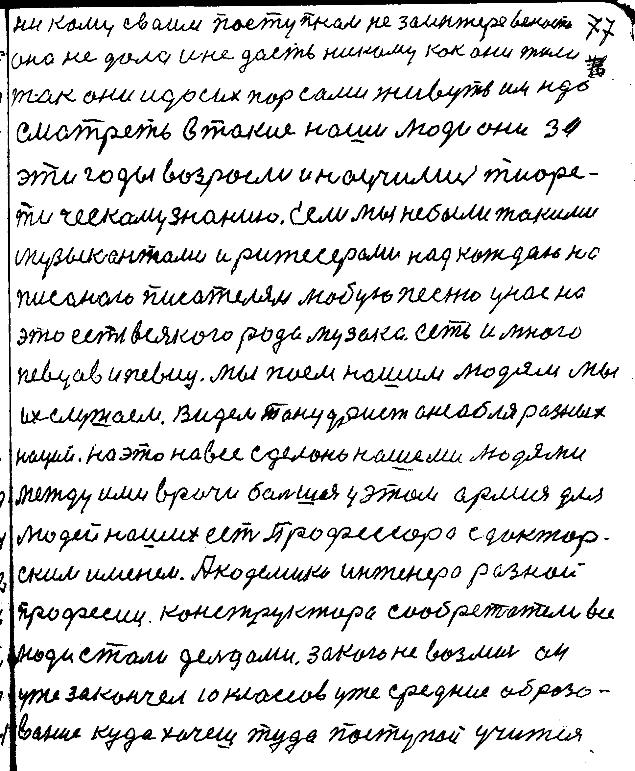 ни кому сваим поступкам не заинтеревеность 77
она не дала и не дасть никому как они жили
так они и досих пор сами живуть им надо
смотреть в такие наши люди они за
эти годы возросли и научились тиоре-
ти ческаму знанию. Если мы небыли такими
музыкантами и рижесерами над кождаю на
писаною писателям любую песню у нас на
это есть всякого рода музака. есть и много
певцав и певиц. мы поем нашим людям мы
их слушаем. Видем танц ансабля разных
наций. на это на все сделано нашеми людями
между ими врачи балшая у этом армия для
людей наших есть Профессора с доктор-
ским именем. Академика инженера разной
професии. конструктора сообретатели все
люди стали делдами. за кого не возмиш он
уже закончел 10 классов уже средние образо-
вание куда хочеш туда поступай учится